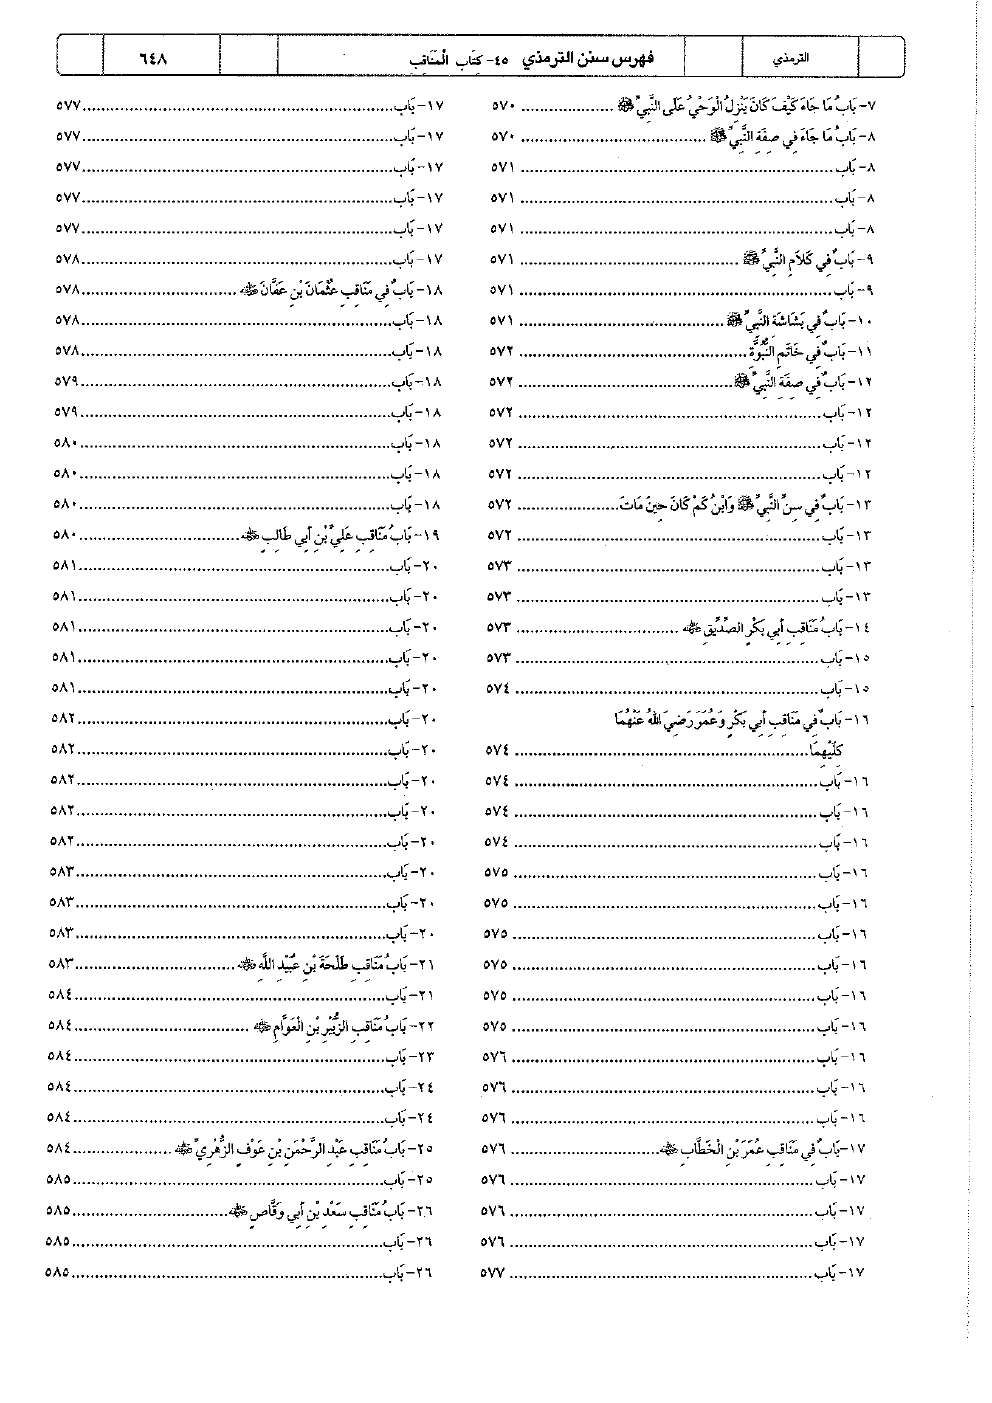 الترمذي
فهرس سنن الترمذي ٤٥- كتاب المناقب
٦٤٨
٧- بَابُ مَا جَاءَ كَيْفَ كَانَ يَنْزِلُ الْوَحْيُ عَلَى النَّبِيِّ ﷺ ..... ٥٧٠
٨- بَابُ مَا جَاءَ فِي صِفَةِ النَّبِيِّ ﷺ ..... ٥٧٠
٨- بَاب ..... ٥٧١
٨- بَاب ..... ٥٧١
٨- بَاب ..... ٥٧١
٩- بَابٌ فِي كَلَامِ النَّبِيِّ ﷺ ..... ٥٧١
٩- بَاب ..... ٥٧١
١٠- بَابٌ فِي بَشَاشَةِ النَّبِيِّ ﷺ ..... ٥٧١
١١- بَابٌ فِي خَاتَمِ النُّبُوَّةِ ..... ٥٧٢
١٢- بَابٌ فِي صِفَةِ النَّبِيِّ ﷺ ..... ٥٧٢
١٢- بَاب ..... ٥٧٢
١٢- بَاب ..... ٥٧٢
١٢- بَاب ..... ٥٧٢
١٣- بَابٌ فِي سِنِّ النَّبِيِّ ﷺ وَابْنُ كَمْ كَانَ حِينَ مَاتَ ..... ٥٧٢
١٣- بَاب ..... ٥٧٢
١٣- بَاب ..... ٥٧٣
١٣- بَاب ..... ٥٧٣
١٤- بَابُ مَنَاقِبِ أَبِي بَكْرٍ الصِّدِّيقِ ﷺ ..... ٥٧٣
١٥- بَاب ..... ٥٧٣
١٥- بَاب ..... ٥٧٤
١٦- بَابٌ فِي مَنَاقِبِ أَبِي بَكْرٍ وَعُمَرَ رَضِيَ اللهُ عَنْهُمَا
كِلَيْهِمَا ..... ٥٧٤
١٦- بَاب ..... ٥٧٤
١٦- بَاب ..... ٥٧٤
١٦- بَاب ..... ٥٧٤
١٦- بَاب ..... ٥٧٥
١٦- بَاب ..... ٥٧٥
١٦- بَاب ..... ٥٧٥
١٦- بَاب ..... ٥٧٥
١٦- بَاب ..... ٥٧٥
١٦- بَاب ..... ٥٧٥
١٦- بَاب ..... ٥٧٦
١٦- بَاب ..... ٥٧٦
١٦- بَاب ..... ٥٧٦
١٧- بَابٌ فِي مَنَاقِبِ عُمَرَ بْنِ الْخَطَّابِ ..... ٥٧٦
١٧- بَاب ..... ٥٧٦
١٧- بَاب ..... ٥٧٦
١٧- بَاب ..... ٥٧٦
١٧- بَاب ..... ٥٧٧
١٧- بَاب ..... ٥٧٧
١٧- بَاب ..... ٥٧٧
١٧- بَاب ..... ٥٧٧
١٧- بَاب ..... ٥٧٧
١٧- بَاب ..... ٥٧٧
١٧- بَاب ..... ٥٧٨
١٨- بَابٌ فِي مَنَاقِبِ عُثْمَانَ بْنِ عَفَّانَ ..... ٥٧٨
١٨- بَاب ..... ٥٧٨
١٨- بَاب ..... ٥٧٨
١٨- بَاب ..... ٥٧٩
١٨- بَاب ..... ٥٧٩
١٨- بَاب ..... ٥٨٠
١٨- بَاب ..... ٥٨٠
١٨- بَاب ..... ٥٨٠
١٩- بَابُ مَنَاقِبِ عَلِيِّ بْنِ أَبِي طَالِبٍ ..... ٥٨٠
٢٠- بَاب ..... ٥٨١
٢٠- بَاب ..... ٥٨١
٢٠- بَاب ..... ٥٨١
٢٠- بَاب ..... ٥٨١
٢٠- بَاب ..... ٥٨١
٢٠- بَاب ..... ٥٨٢
٢٠- بَاب ..... ٥٨٢
٢٠- بَاب ..... ٥٨٢
٢٠- بَاب ..... ٥٨٢
٢٠- بَاب ..... ٥٨٢
٢٠- بَاب ..... ٥٨٣
٢٠- بَاب ..... ٥٨٣
٢٠- بَاب ..... ٥٨٣
٢١- بَابُ مَنَاقِبِ طَلْحَةَ بْنِ عُبَيْدِ اللَّهِ ..... ٥٨٣
٢١- بَاب ..... ٥٨٤
٢٢- بَابُ مَنَاقِبِ الزُّبَيْرِ بْنِ الْعَوَّامِ ..... ٥٨٤
٢٣- بَاب ..... ٥٨٤
٢٤- بَاب ..... ٥٨٤
٢٤- بَاب ..... ٥٨٤
٢٥- بَابُ مَنَاقِبِ عَبْدِ الرَّحْمَنِ بْنِ عَوْفٍ الزُّهْرِيِّ ..... ٥٨٤
٢٥- بَاب ..... ٥٨٥
٢٦- بَابُ مَنَاقِبِ سَعْدِ بْنِ أَبِي وَقَّاصٍ ..... ٥٨٥
٢٦- بَاب ..... ٥٨٥
٢٦- بَاب ..... ٥٨٥